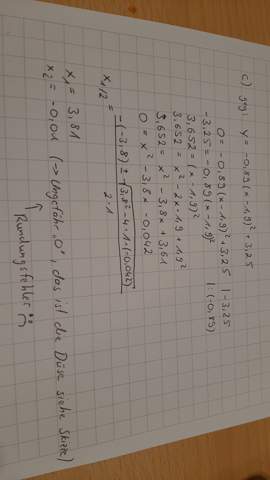 c) geg: y = -0,89(x-1,9)² + 3,25
0 = -0,89(x-1,9)² + 3,25 | -3,25
-3,25 = -0,89(x-1,9)² | : (-0,89)
3,652 = (x-1,9)²
3,652 = x² - 2x·1,9 + 1,9²
3,652 = x² - 3,8x + 3,61
0 = x² - 3,8x - 0,042
x1/2 = -(-3,8) ± √3,8² - 4·1·(-0,042) / 2·1
x1 = 3,81
x2 = -0,01 (→ Ungefähr „0", das ist die Düse siehe Skizze)
↑
Rundungsfehler